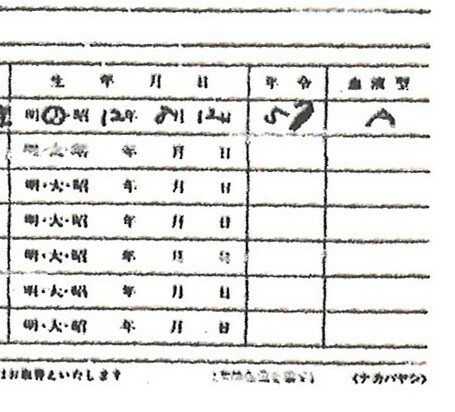 生年月日 年令 血液型
明・大・昭 12年 8月 12日 57 A
明・大・昭 年 月 日
明・大・昭 年 月 日
明・大・昭 年 月 日
明・大・昭 年 月 日
明・大・昭 年 月 日
明・大・昭 年 月 日
はお取替えいたします 〈ナカバヤシ〉